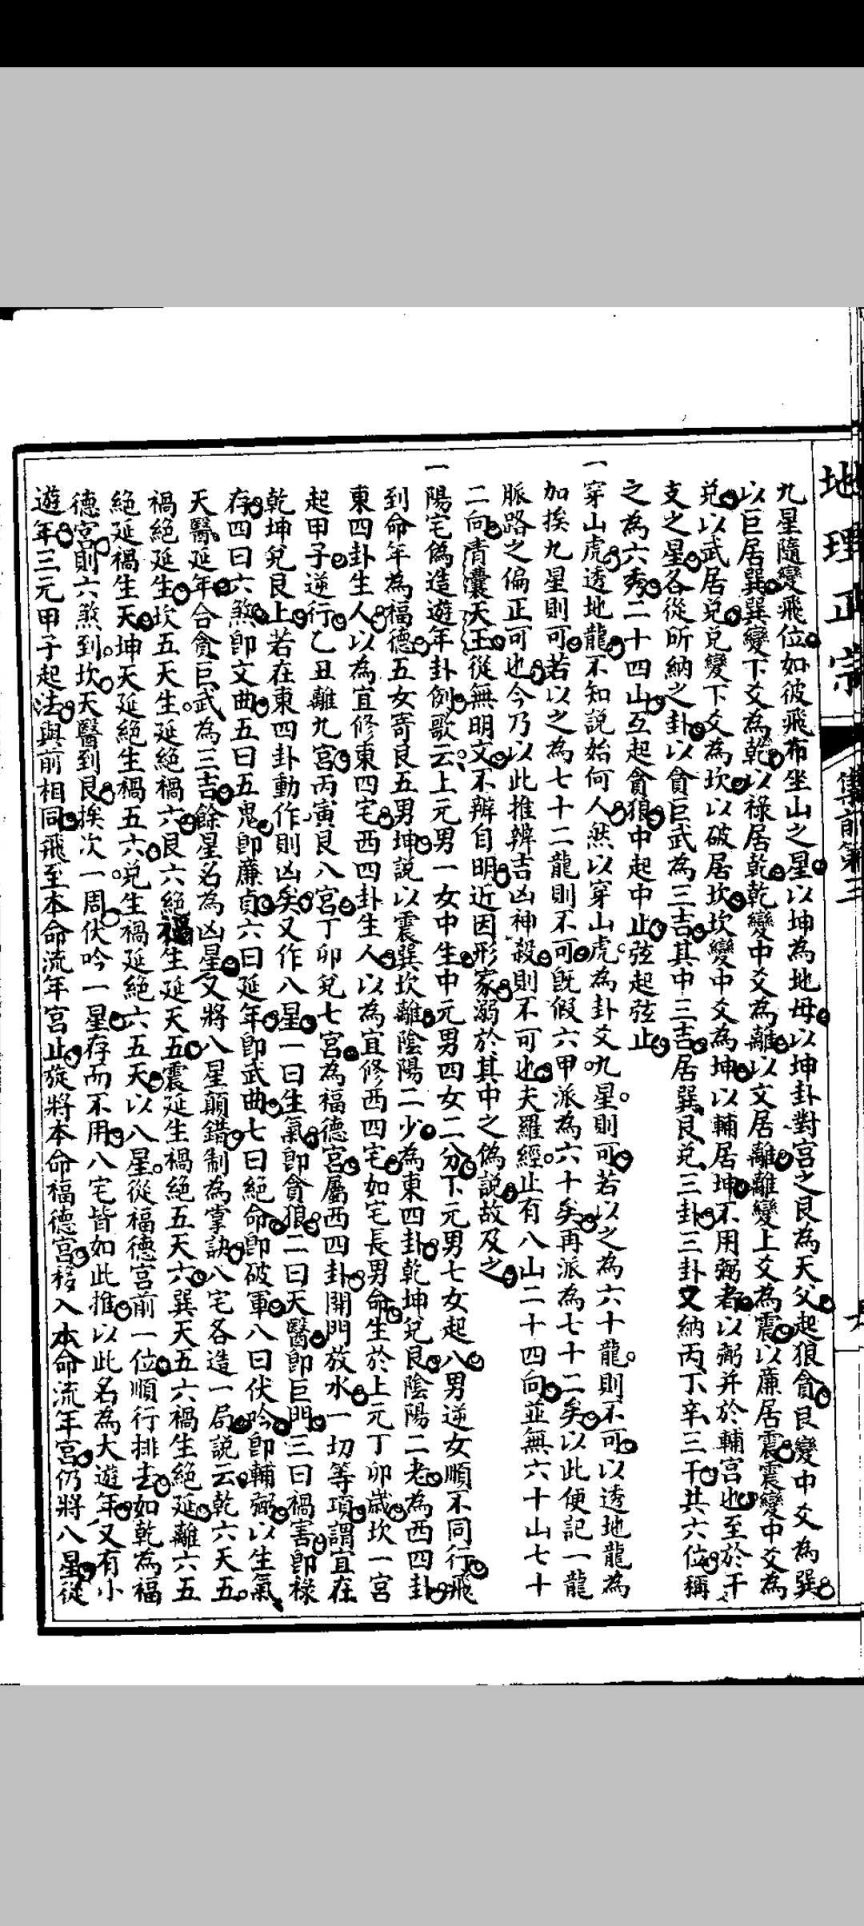 地理正宗
九星隨變飛位如彼飛布坐山之星以坤為地母以坤卦對宮之艮為天父起狼貪艮變中爻為巽
以巨居巽巽變下爻為乾以祿居乾乾變中爻為離以文居離離變上爻為震以廉居震震變中爻為
兌以武居兌兌變下爻為坎以破居坎坎變中爻為坤以輔居坤不用弼者以弼并於輔宮也至於干
支之星各從所納之卦以貪巨武為三吉其中三吉居巽艮兌三卦三卦又納丙丁辛三干共六位稱
之為六秀二十四山互起貪狼中起中止弦起弦止
一穿山虎透地龍不知說始何人然以穿山虎為卦爻九星則可若以之為六十龍則不可以透地龍為
加挨九星則可若以之為七十二龍則不可既假六甲派為六十矣再派為七十二矣以此便記一龍
脈路之偏正可也今乃以此推辨吉凶神殺則不可也夫羅經止有八山二十四向並無六十山七十
二向青囊天玉從無明文不辨自明近因形家溺於其中之偽說故及之
一陽宅偽造遊年卦例歌云上元男一女中生中元男四女二分下元男七女起八男逆女順不同行飛
到命年為福德五女寄艮五男坤說以震巽坎離陰陽二少為東四卦乾坤兌艮陰陽二老為西四卦
東四卦生人以為宜修東四宅西四卦生人以為宜修西四宅如宅長男命生於上元丁卯歲坎一宮
起甲子逆行乙丑離九宮丙寅艮八宮丁卯兌七宮為福德宮屬西四卦開門放水一切等項謂宜在
乾坤兌艮上若在東四卦動作則凶矣又作八星一曰生氣卽貪狼二曰天醫卽巨門三曰禍害卽祿
存四曰六煞卽文曲五曰五鬼卽廉貞六曰延年卽武曲七曰絕命卽破軍八曰伏吟卽輔弼以生氣
天醫延年合貪巨武為三吉餘星名為凶星又將八星顛錯制為掌訣八宅各造一局說云乾六天五
禍絕延生坎五天生延絕禍六艮六絕禍生延天五震延生禍絕五天六巽天五六禍生絕延離六五
絕延禍生天坤天延絕生禍五六兌生禍延絕六五天以八星從福德宮前一位順行排去如乾為福
德宮則六煞到坎天醫到艮挨次一周伏吟一星存而不用八宅皆如此推以此名為大遊年又有小
遊年三元甲子起法與前相同飛至本命流年宮止旋將本命福德宮移入本命流年宮仍將八星從